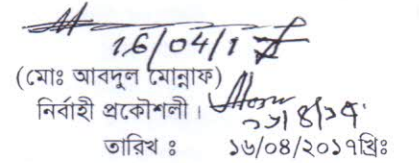 16/04/17
(মোঃ আবদুল মোন্নাফ)
নির্বাহী প্রকৌশলী।
১৬/৪/১৭
তারিখ ঃ ১৬/০৪/২০১৭খ্রিঃ